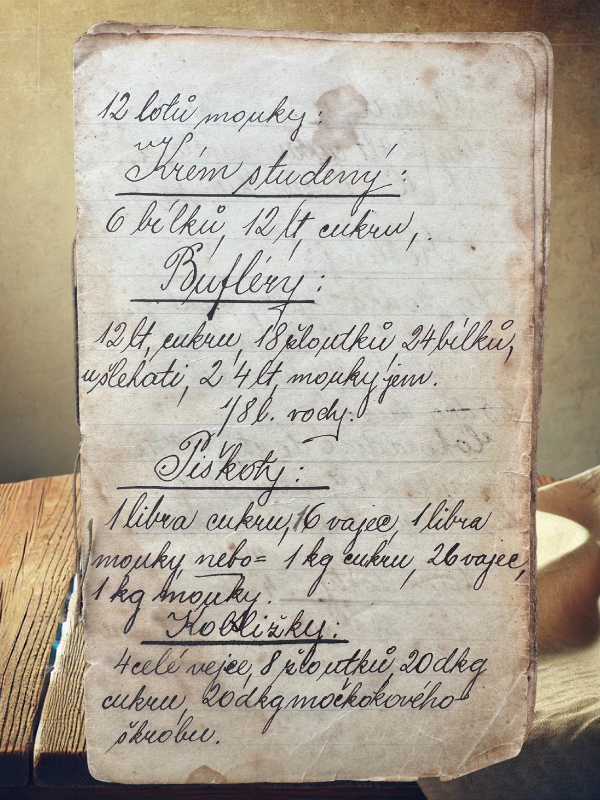 12 lotů mouky:
Krém studený:
6 bílků, 12 lt, cukru,.
Bufléry:
12 lt, cukru, 18 žloutků, 24 bílků,
ušlehati, 24 lt, mouky jem.
1/8 l. vody.
Piškoty:
1 libra cukru, 16 vajec, 1 libra
mouky nebo= 1 kg cukru, 26 vajec,
1 kg mouky.
Koblížky:
4 celé vejce, 8 žloutků, 20 dkg
cukru, 20 dkg
škrobu.